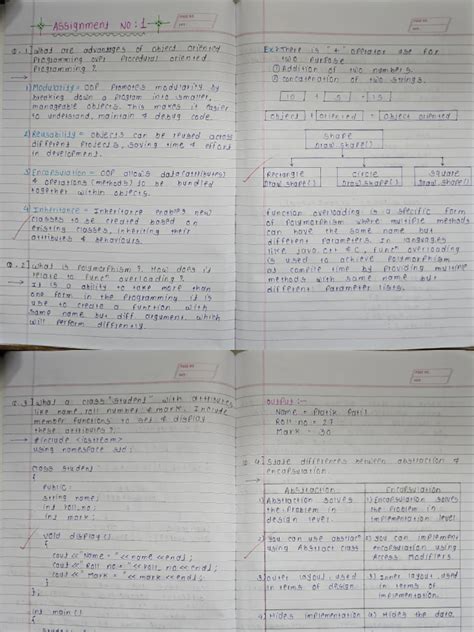 Assignment No: 1
Q.1] What are advantages of object oriented
Programming over Procedural oriented
Programming?
1) Modularity = OOP Promotes modularity by
breaking down a program into smaller,
manageable objects. This makes it easier
to understand, maintain & debug code.
2) Reusability = objects can be reused across
different Projects, saving time & effort
in development.
3) Encapsulation = OOP allows data (attributes)
& operations (methods) to be bundled
together within objects.
4) Inheritance = Inheritance enables new
classes to be created based on
existing classes, inheriting their
attributes & behaviours.
Q.2] What is Polymorphism? How does it
relate to funcⁿ overloading?
→ It is a ability to take more than
one form in the Programming it is
use to create a function with
same name but diff argument. which
will perform differently.
Ex) There is "+" operator use for
two purpose
① Addition of two numbers.
② concatenation of two strings.
10 + 5 = 15
Object + Oriented = Object oriented
Shape
Draw.shape()
Rectangle Circle Square
Draw.shape() Draw.shape() Draw.shape()
function overloading is a specific form
of polymorphism where multiple methods
can have the same name but
different parameters. In languages
like java C++ & C, funcⁿ overloading
is used to achieve polymorphism
at compile time by providing multiple
methods with same name but
different parameter lists.
Q.3] What a class "student" with attributes
like name, roll number & mark. Include
member functions to set & display
these attributes?
→ #include <iostream>
using namespace std;
class student
{
Public:
string name;
int roll_no;
int mark;
void display()
{
cout <<"Name = "<<name<<endl;
cout <<"Roll no = "<<roll_no<<endl;
cout <<"Mark = "<<mark<<endl;
}
};
int main()
{
Output :-
Name = Pratik Patil
Roll no = 27
Mark = 30
Q.4] State differences between abstraction &
encapsulation
Abstraction Encapsulation
1) Abstraction solves 1) Encapsulation solves
the Problem in the Problem in
design level. implementation level
2) You can use abstraⁿ 2) You can implement
using Abstract class encapsulation using
Access Modifiers
3) Outer layout, used 3) Inner layout, used
in terms of design. in terms of
implementation
4) Hides implementation 4) Hides the data.